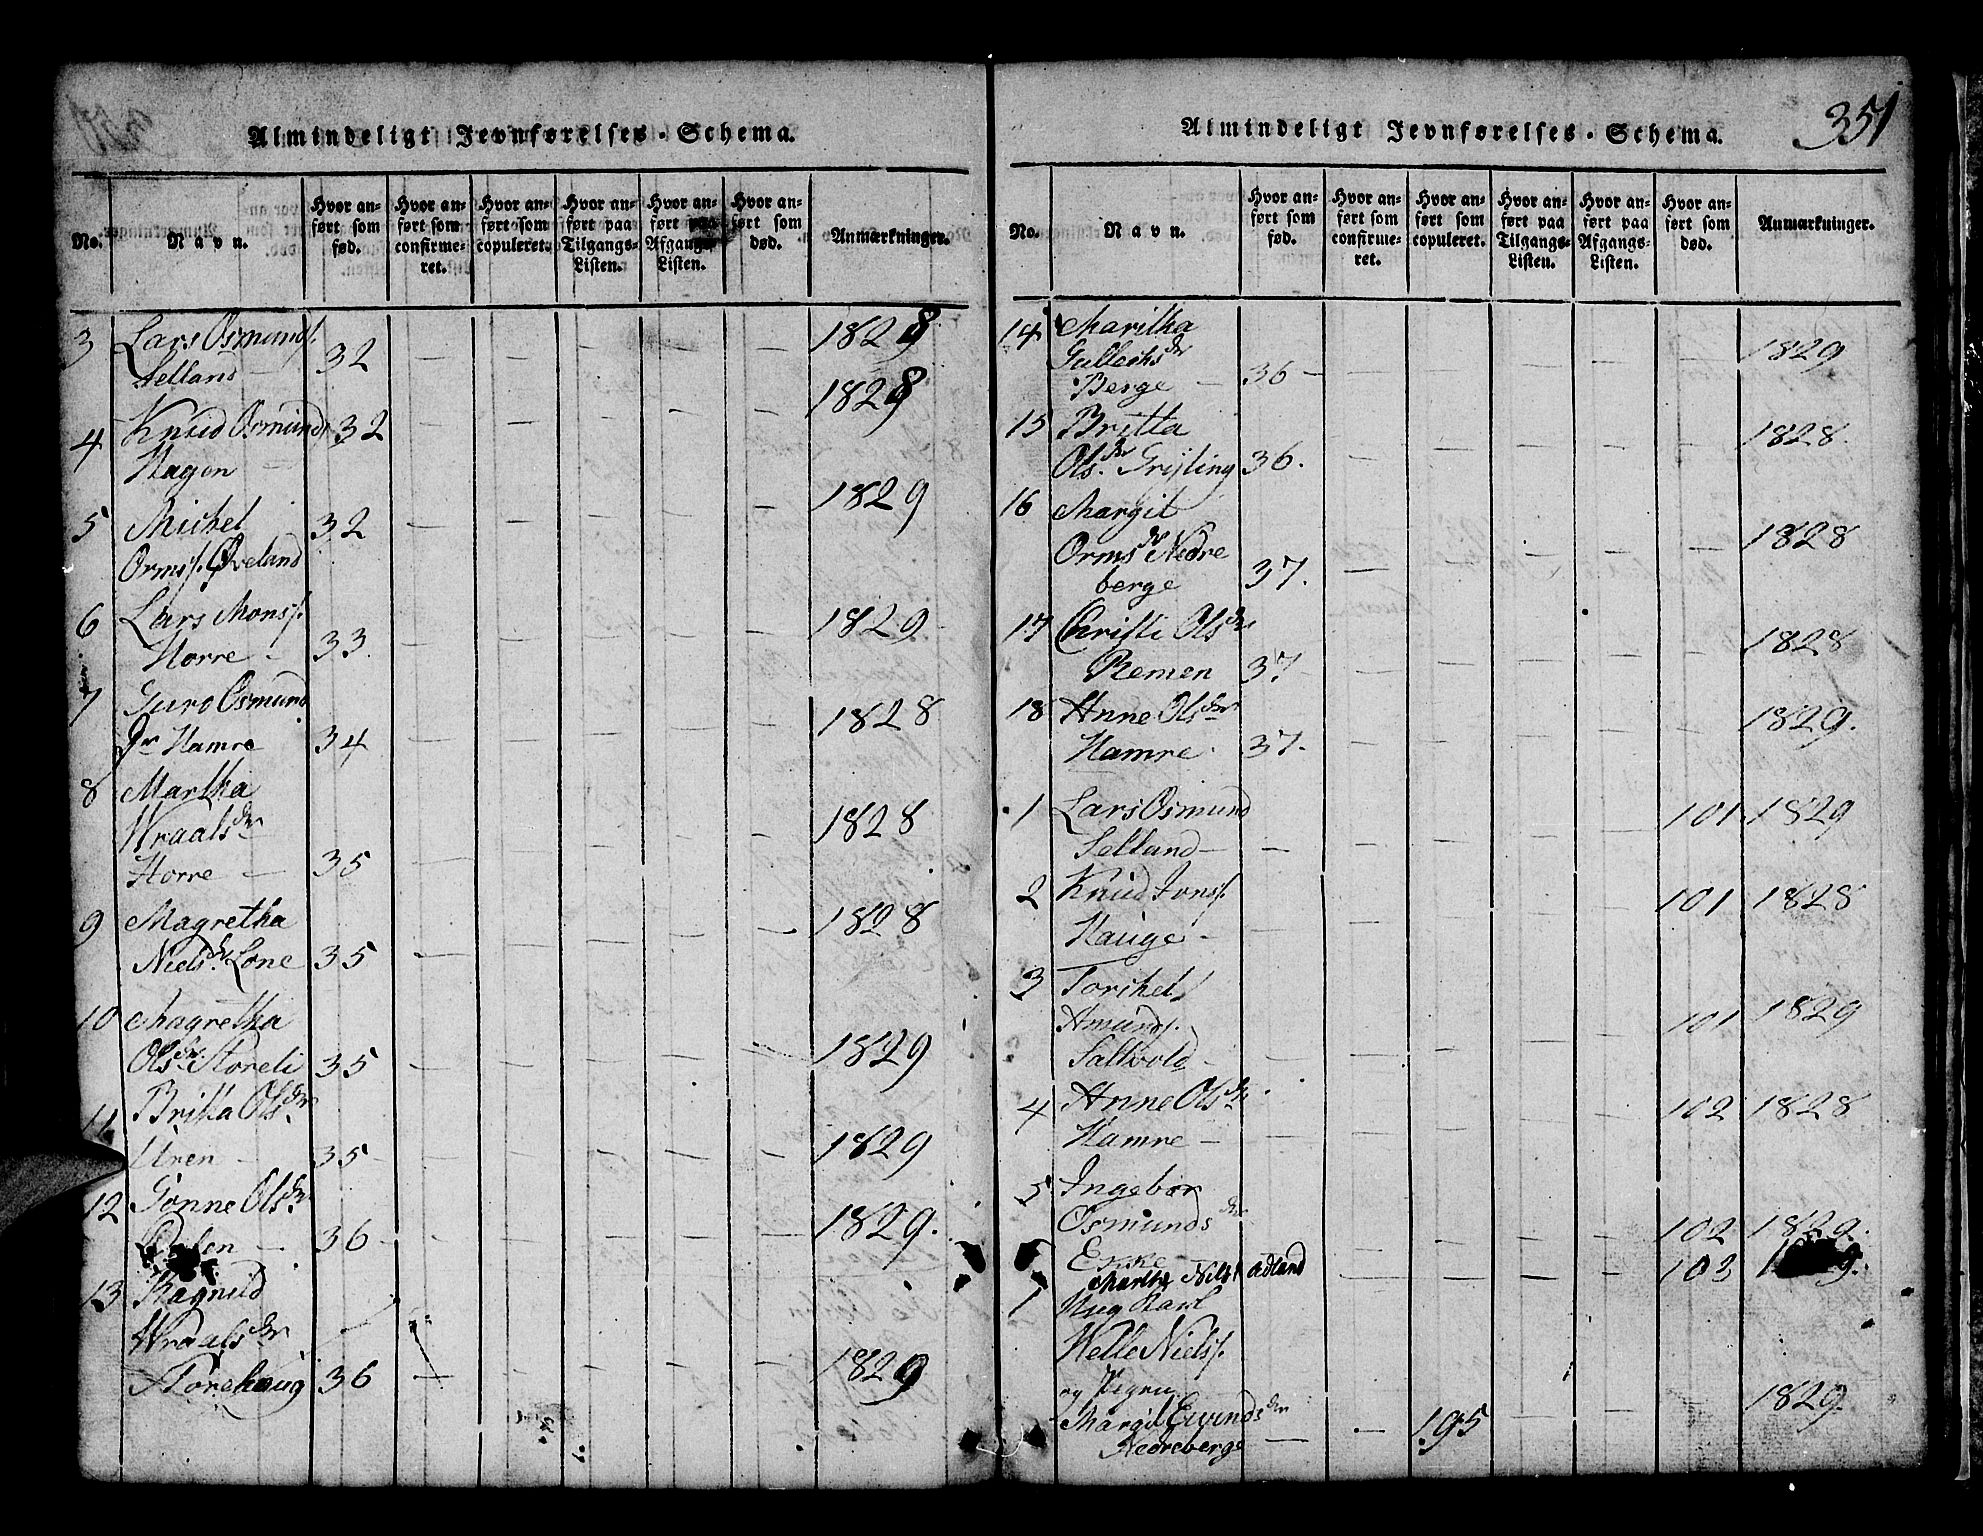 Almindeligt Jevnførelses-Schema.
No. Navn. Hvor anført som fød. Hvor anført som confirmeret. Hvor anført som copuleret. Hvor anført paa Tilgangs-Listen. Hvor anført paa Afgangs-Listen. Hvor anført som død. Anmærkninger.
3 Lars Osmunds.
Selland — 32 — — — — — 1828
4 Knud Osmunds 32 — — — — — 1828
Hagen —
5 Michel 32 — — — — — 1829
Ormss. Øveland
6 Lars Monss.
Horre — 33. — — — — — 1829
7 Guro Osmund
Dr Hamre 34 — — — — — 1828
8 Martha
Wraalsdr
Horre — 35 — — — — — 1828
9 Magretha
Nielsdr. Lone 35 — — — — — 1828
10 Magretha
Olsdr. Storeli 35 — — — — — 1829
11 Britta Olsdr.
Uren — 35 — — — — — 1829
12 Gonne Olsdr
Dalen — 36 — — — — — 1829.
13 Ragnild
Wraalsdr
Storehaug 36 — — — — — 1829
Almindeligt Jevnførelses-Schema. 351
No. Navn. Hvor anført som fød. Hvor anført som confirmeret. Hvor anført som copuleret. Hvor anført paa Tilgangs-Listen. Hvor anført paa Afgangs-Listen. Hvor anført som død. Anmærkninger.
14 Maritha
Gullechsdr
Berge — 36 — — — — — 1829
15 Britta
Olsdr. Gristing 36. — — — — — 1828.
16 Margit
Ormsdr Nedre
berge 37. — — — — — 1828
17 Christi Olsdr
Remen 37 — — — — — 1828
18 Anne Olsdr
Hamre. 37. — — — — — 1829.
1 Lars Osmund
Selland — — — — — — 101 1829
2 Knud Jonss.
Hauge — — — — — 101 1828
3 Torchel
Amunds.
Saltvold — — — — — — 101 1829
4 Anne Olsdr
Hamre — — — — — — 102 1828
5 Ingebor
Osmundsdr
— — — — — 102 1829.
Martha Nils Adland — — — — — 103
1 Ung Karl
Helle Nielss.
og Pigen
Margit Eivindsdr
Nedreberge — — 195 — — 1829.